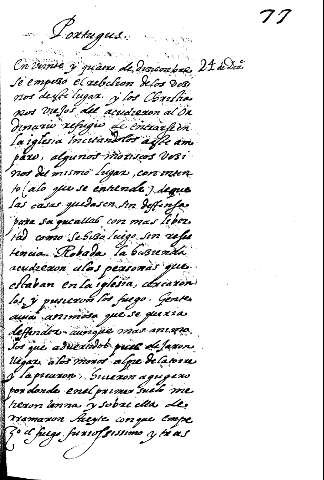 77
Portugus.
En veinte y quatro de diziembre 24 de Dizᵉ
se empeço el rebelion de los vezi
nos deste lugar, y los Christia
nos viejos del acudieron al or
dinario refugio de entrarse en
la iglesia incitandolos a este am
paro, algunos moriscos vezi
nos del mismo lugar, con inten
to (a lo que se entiende) de que
las casas quedasen sin deffensa
para saqueallas con mas liber
tad como se hizo luego sin resis
tencia. Robada la hazienda
acudieron a las personas que
estaban en la iglesia, cercaron
los y pusieron los fuego. Gente
avia animosa que se queria
defender aunque mas
sos que de
llegar a los moros al pie de la torre
y la picaron. hizieron agugero
por donde en el primer suelo me
tieron leña y sobre ella de
rramaron azeyte con que empe
ço el fuego furiosissimo y tras